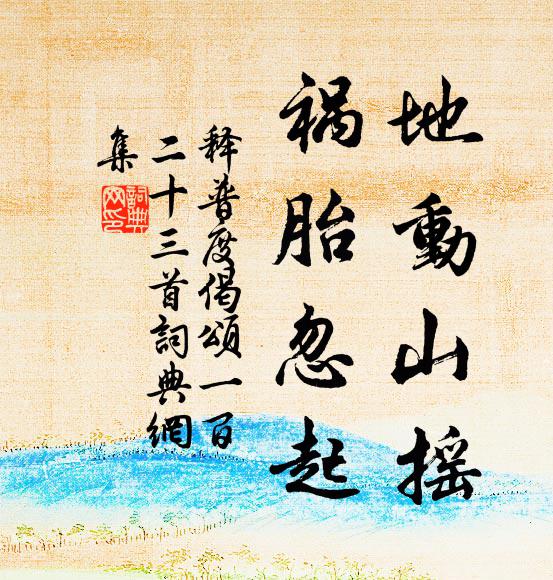 地動山摇
祸胎忽起
释普度偈頌一百
二十三首詞典網
集
詞典
网印